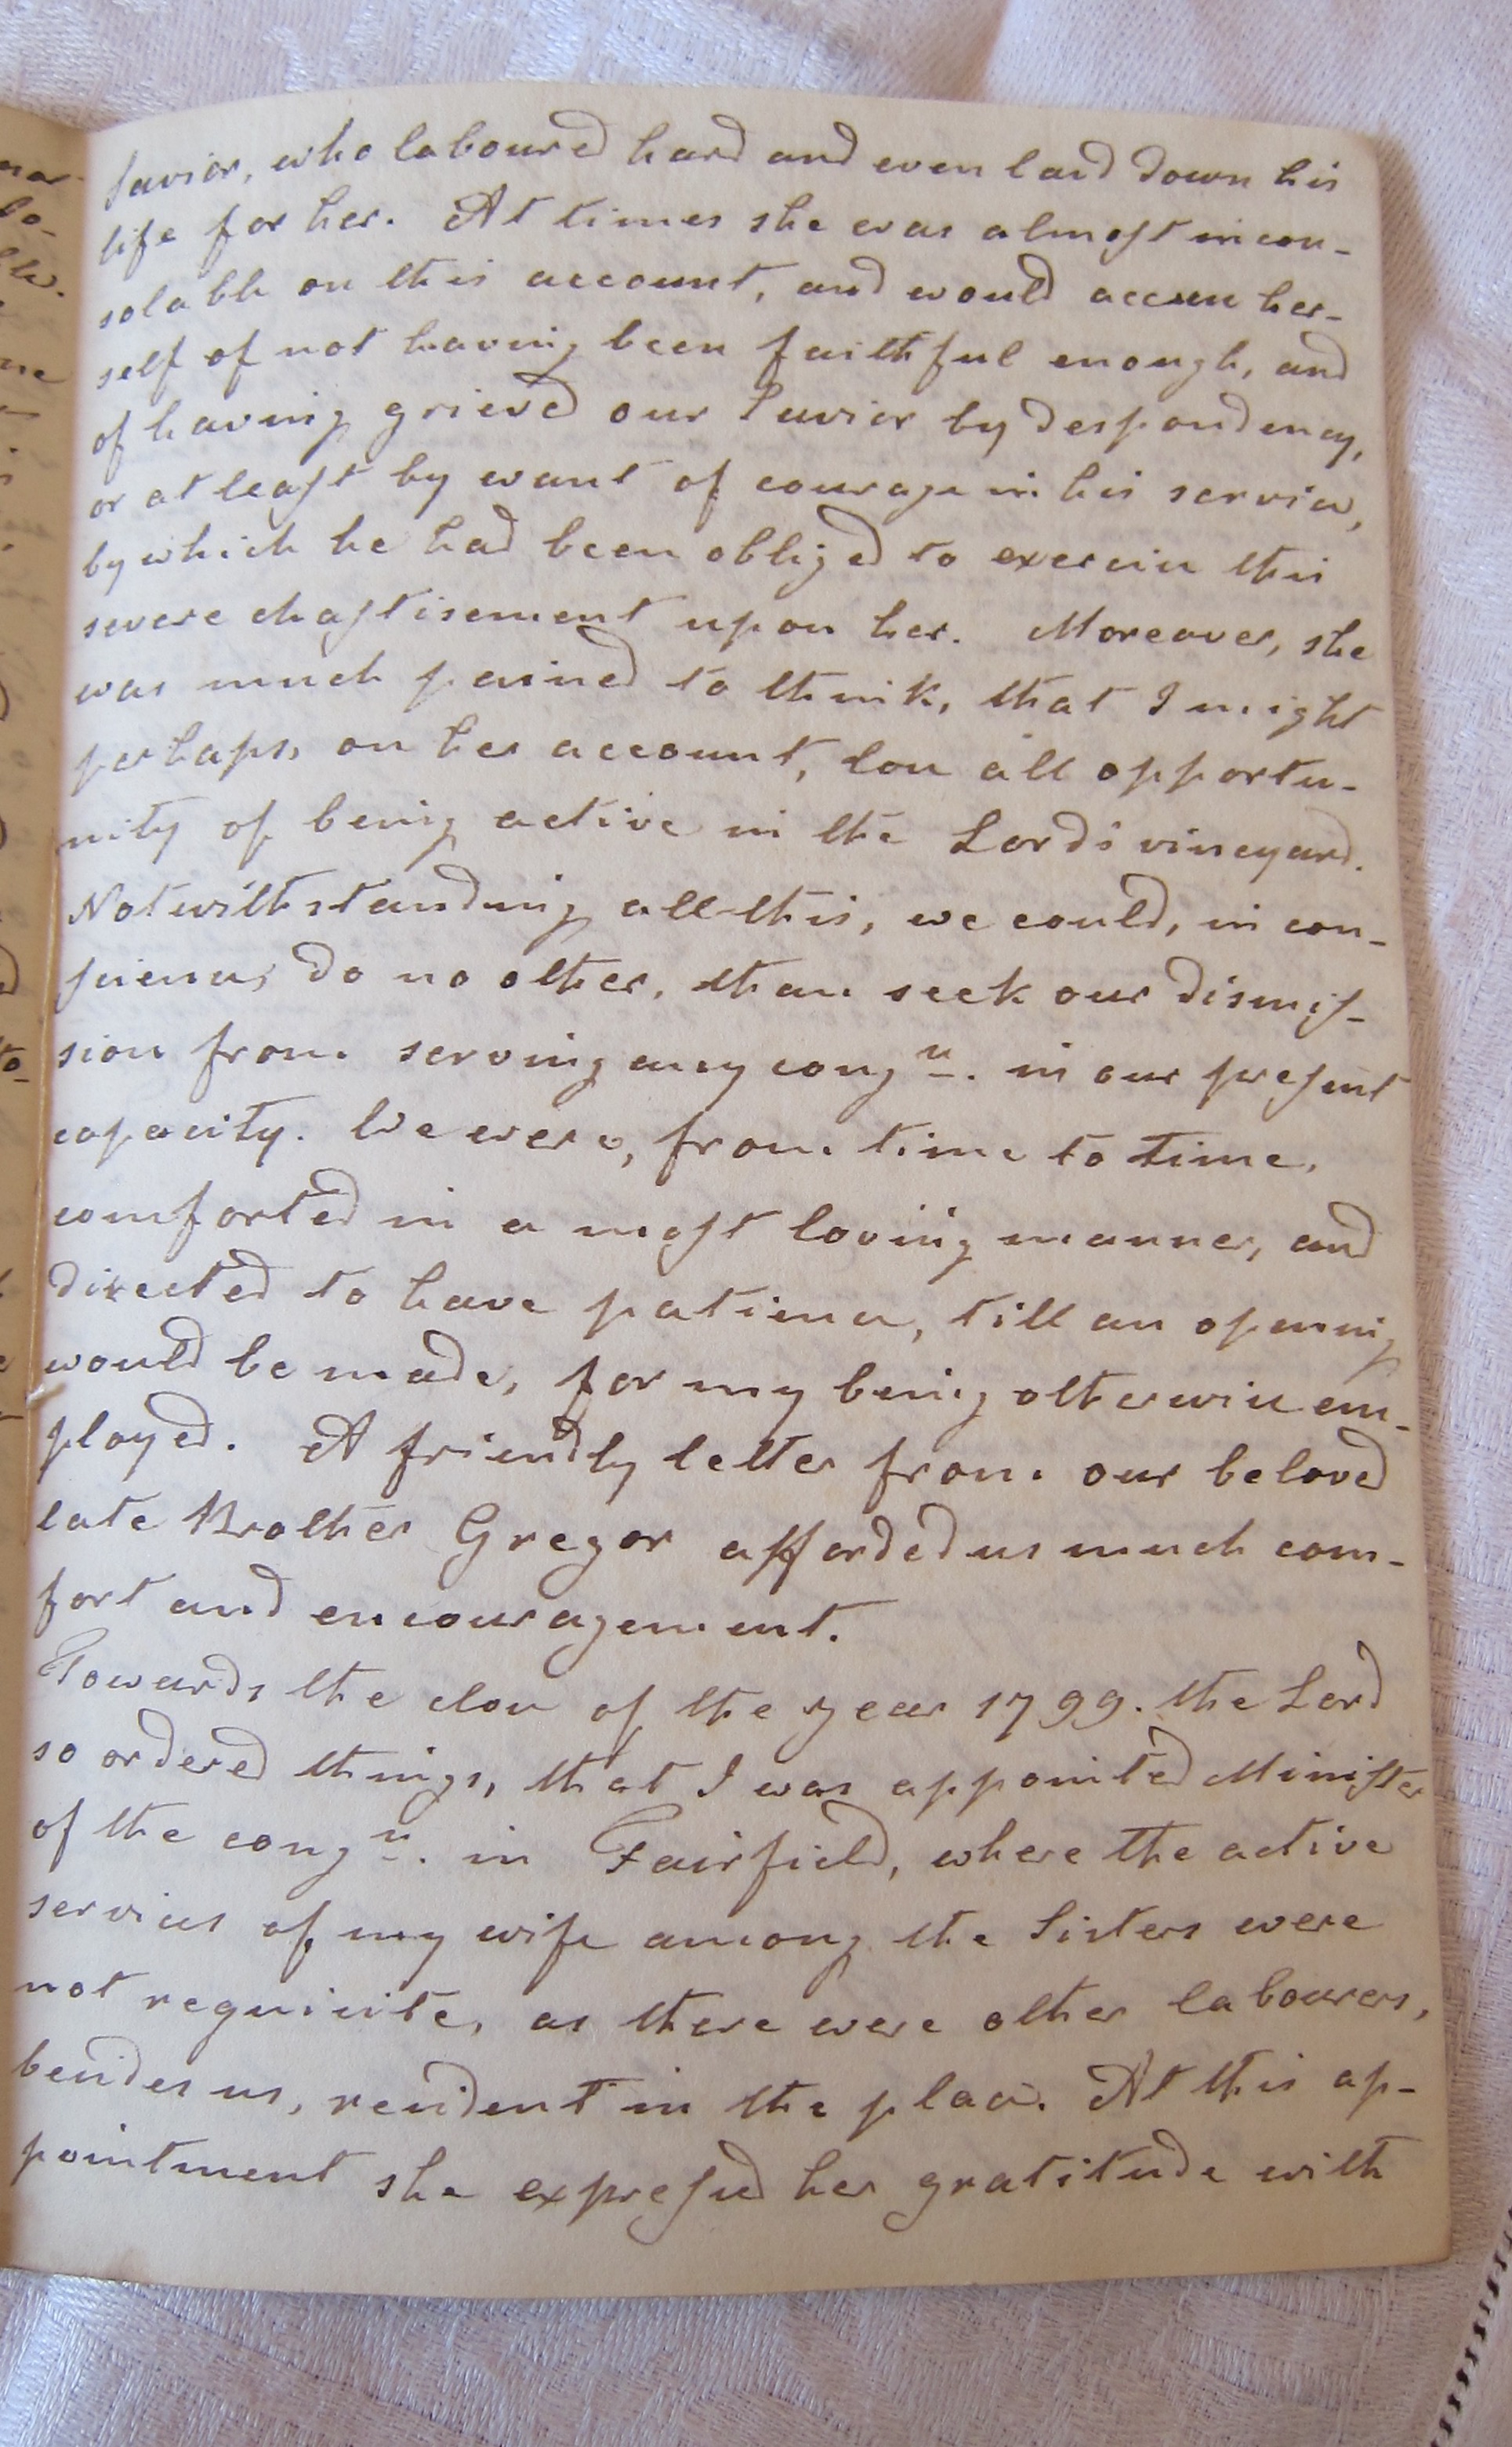 Savior, who laboured hard and even laid down his
life for her. At times she was almost incon-
solable on this account, and would accuse her-
self of not having been faithful enough, and
of having grieved our Savior by despondency,
or at least by want of courage in his service,
by which he had been obliged to exercise this
severe chastisement upon her. Moreover, she
was much pained to think, that I might
perhaps, on her account, lose all opportu-
nity of being active in the Lord's vineyard.
Notwithstanding all this, we could, in con-
science, do no other, than seek our dismis-
sion from serving any cong.n in our present
capacity. We were, from time to time,
comforted in a most loving manner, and
directed to have patience, till an opening
would be made, for my being otherwise em-
ployed. A friendly letter from our beloved
late Brother Gregor afforded us much com-
fort and encouragement.
Towards the close of the year 1799. the Lord
so ordered things, that I was appointed Minister
of the cong.n in Fairfield, where the active
services of my wife among the Sisters were
not requisite, as there were other labourers,
besides us, resident in the place. At this ap-
pointment she expressed her gratitude with